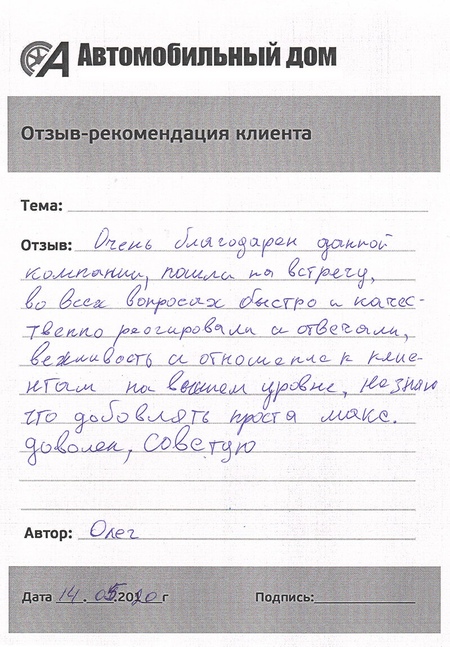 Автомобильный дом
Отзыв-рекомендация клиента
Тема:
Отзыв: Очень благодарен данной
компании, пошли на встречу,
во всех вопросах быстро и качес-
твенно реагировали и отвечали,
вежливость и отношение к клие-
нтам на высшем уровне, не знаю
что добовлять проста макс.
доволен, советую
Автор: Олег
Дата 14.05.2020г Подпись: